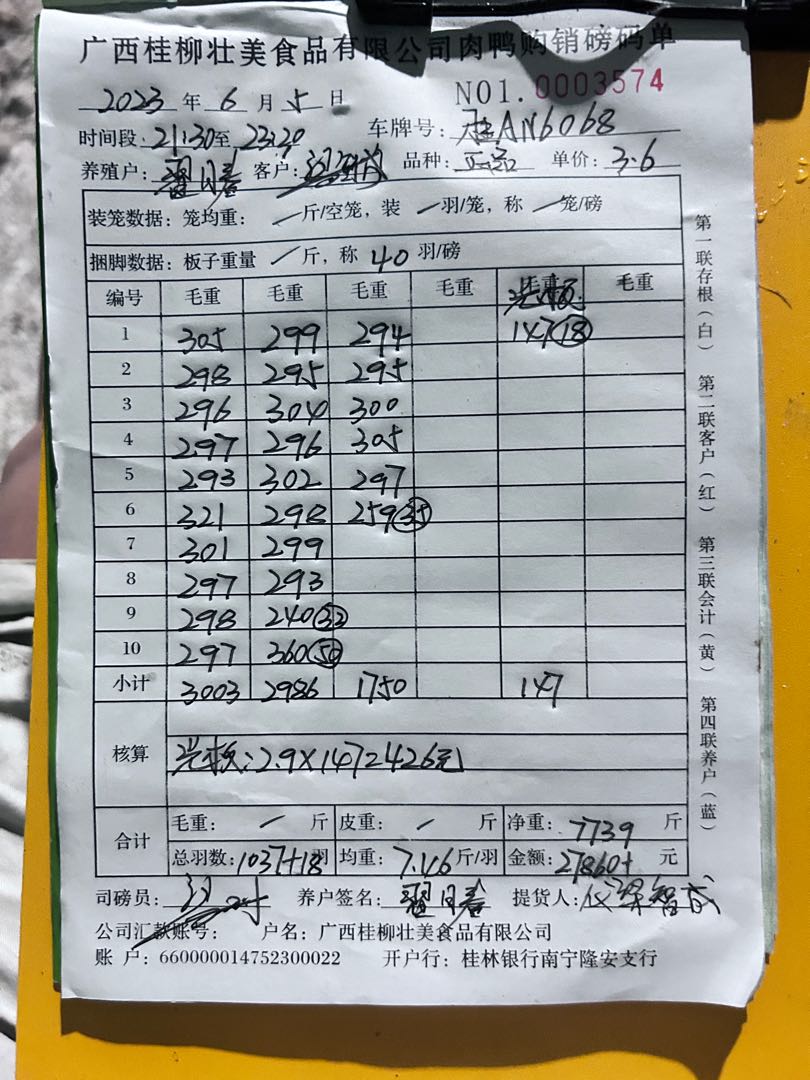 广西桂柳壮美食品有限公司肉鸭购销磅码单
2023 年 6 月 5 日 NO1. 0003574
时间段: 21:30 至 23:20 车牌号: 桂AN6068
养殖户: 客户: 品种: 正品 单价: 3.6
装笼数据: 笼均重: 一斤/空笼, 装 一羽/笼, 称 一笼/磅
捆脚数据: 板子重量 一斤, 称 40 羽/磅
编号 毛重 毛重 毛重 毛重 毛重
1 305 299 294 147(18)
2 298 295 295
3 296 304 300
4 297 296 305
5 293 302 297
6 321 298 259(35)
7 301 299
8 297 293
9 298 240(32)
10 297 360(50)
小计 3003 2986 1750 147
核算
2.9×147=426元
合计 毛重: 一 斤 皮重: 一 斤 净重: 7739 斤
总羽数: 1037+18 羽 均重: 7.46 斤/羽 金额: 27860+ 元
司磅员: 养户签名: 提货人:
公司汇款账号: 户名: 广西桂柳壮美食品有限公司
账 户: 660000014752300022 开户行: 桂林银行南宁隆安支行
第一联存根(白) 第二联客户(红) 第三联会计(黄) 第四联养户(蓝)